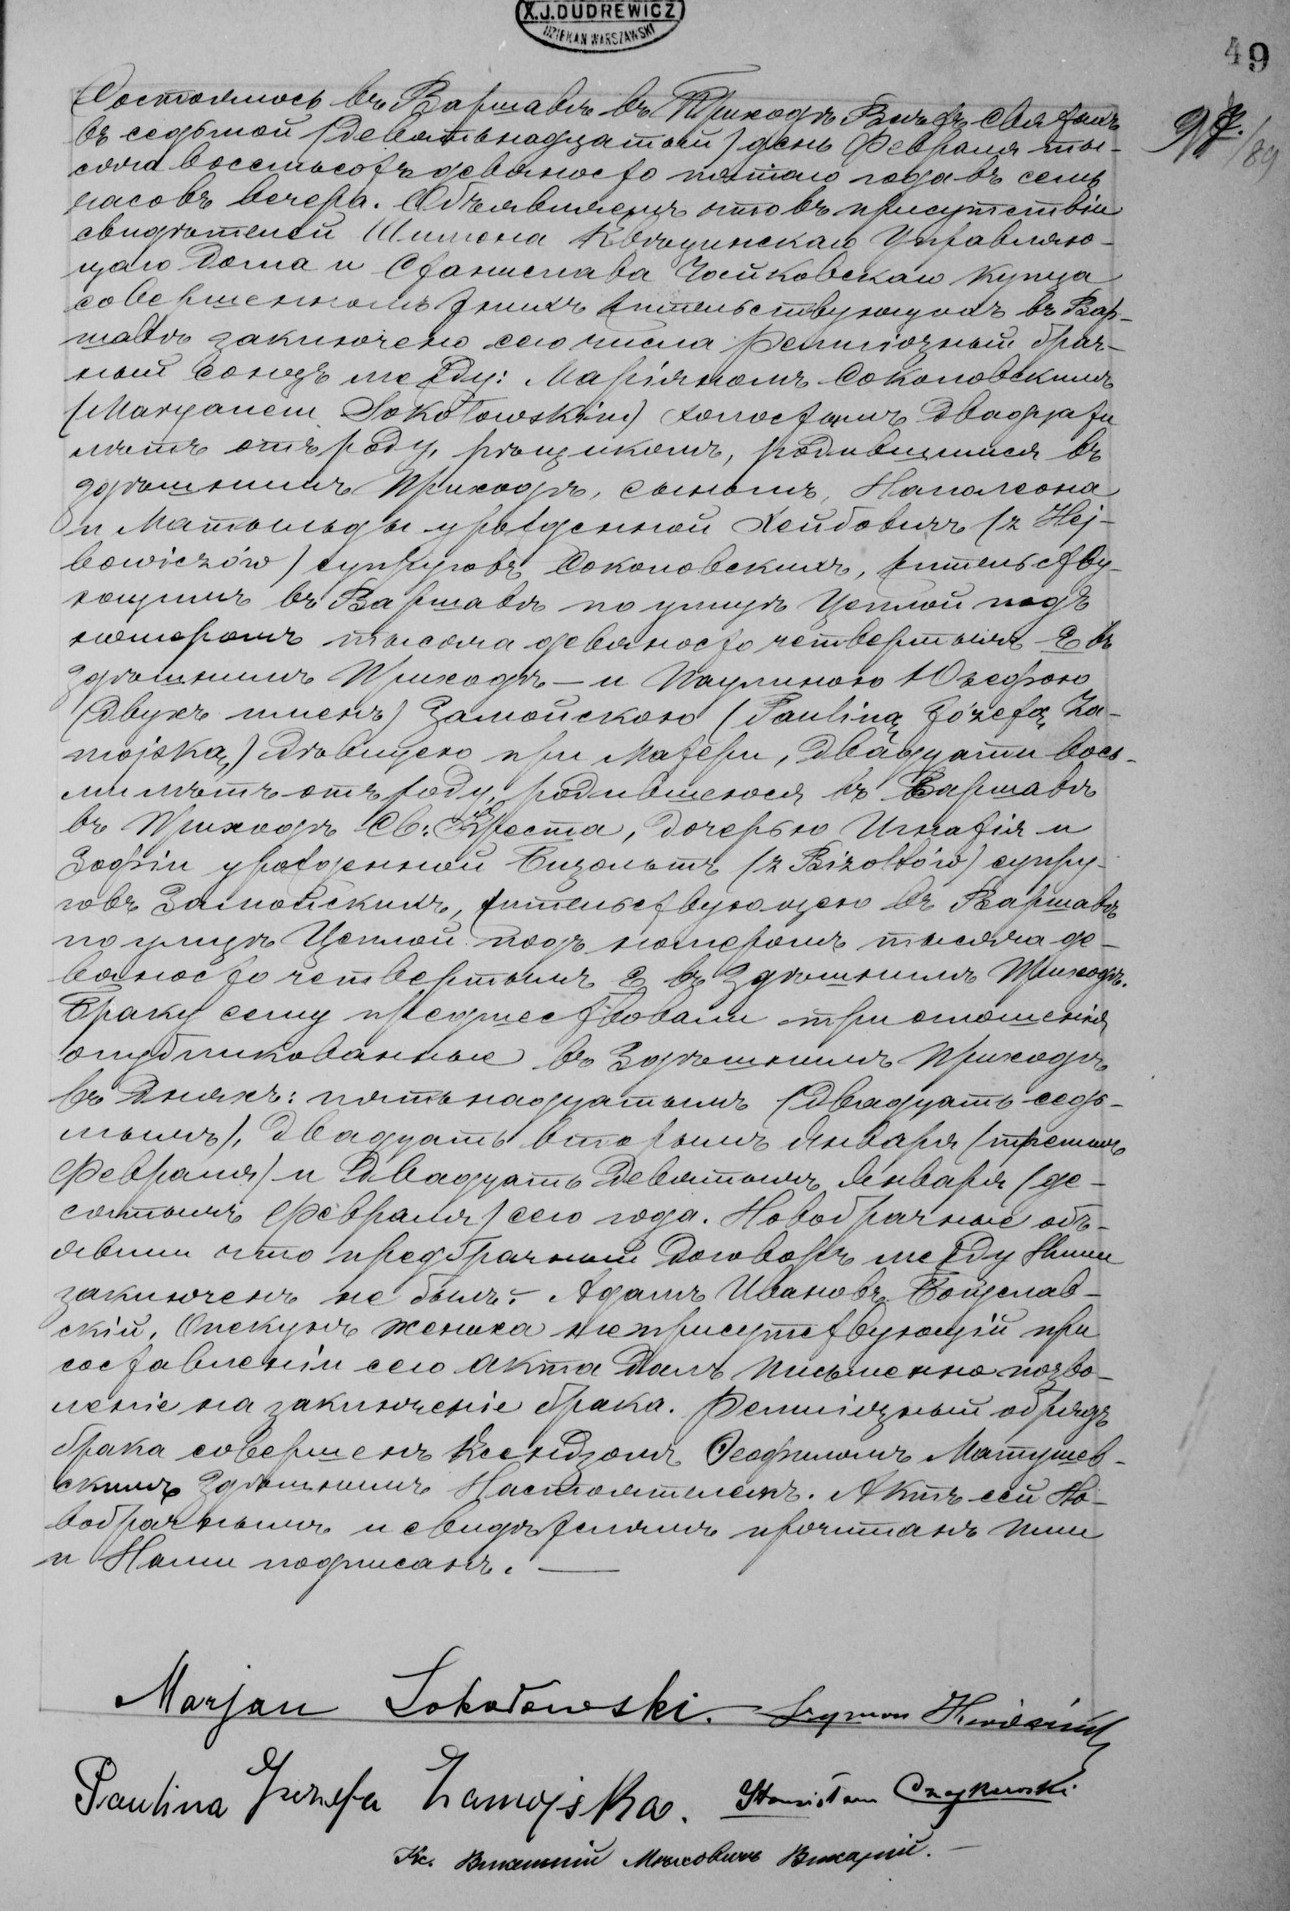 X.J. DUDREWICZ
DZIEKAN WARSZAWSKI
49
97/89
Состоялось въ Варшавѣ въ Приходѣ Всѣхъ Святыхъ
въ седьмой (девятьнадцатый) день Февраля ты-
сяча восемьсотъ девяносто пятаго года въ семь
часовъ вечера. Объявляемъ что въ присутствіи
свидѣтелей Шимона Управляю-
щаго Дома и Станислава Чайковскаго Купца
совершеннолѣтнихъ жительствующихъ въ Вар-
шавѣ заключенъ сего числа Религіозный брач-
ный союзъ между: Маріяномъ Соколовскимъ
(Maryanem Sokołowskim) холостымъ двадцати
лѣтъ отъ роду, рѣщикомъ, родившимся въ
здѣшнимъ Приходѣ, сыномъ, Наполеона
и Матыльды урожденной Хейбовичъ (z Hej-
bowiczów) супруговъ Соколовскихъ, жительству-
ющимъ въ Варшавѣ по улицѣ Цеплой подъ
номеромъ тысяча девяносто четвертымъ Е въ
здѣшнимъ Приходѣ — и Паулиною Юзефою
(двухъ именъ) Замойскою (Pauliną Józefą Za-
mojską) дѣвицею при Матери, двадцати вось-
ми лѣтъ отъ роду, родившеюся въ Варшавѣ
въ Приходѣ Св: Креста, дочерью Игнатія и
Зофіи урожденной Бизольтъ (z Bizoltów) супру-
говъ Замойскихъ, жительствующею въ Варшавѣ
по улицѣ Цеплой подъ номеромъ тысяча де-
вяносто четвертымъ Е въ Здѣшнимъ Приходѣ.
Браку сему предшествовали три оглошенія
опубликованные въ Здѣшнимъ Приходѣ
въ Дняхъ: пятьнадцатымъ (двадцать седь-
мымъ), двадцать вторымъ Января (третьимъ
Февраля) и двадцать девятымъ Января (де-
сятымъ Февраля) сего года. Новобрачные объ-
явили что предбрачный договоръ между Ними
заключенъ не былъ. Адамъ Ивановъ Бойславскій,
Опекунъ жениха не присутствующій при
составленіи сего Акта далъ письменно позво-
леніе на заключеніе брака. Религіозный обрядъ
брака совершенъ Ксендзомъ Теофиломъ Матушев-
скимъ Здѣшнимъ Настоятелемъ. Актъ сей Но-
вобрачнымъ и свидѣтелямъ прочитанъ ими
и Нами подписанъ. —
Marjan Sokołowski. Szymon
Paulina Józefa Zamojska. Stanisław Czajkowski.
Кс. Викарій. —